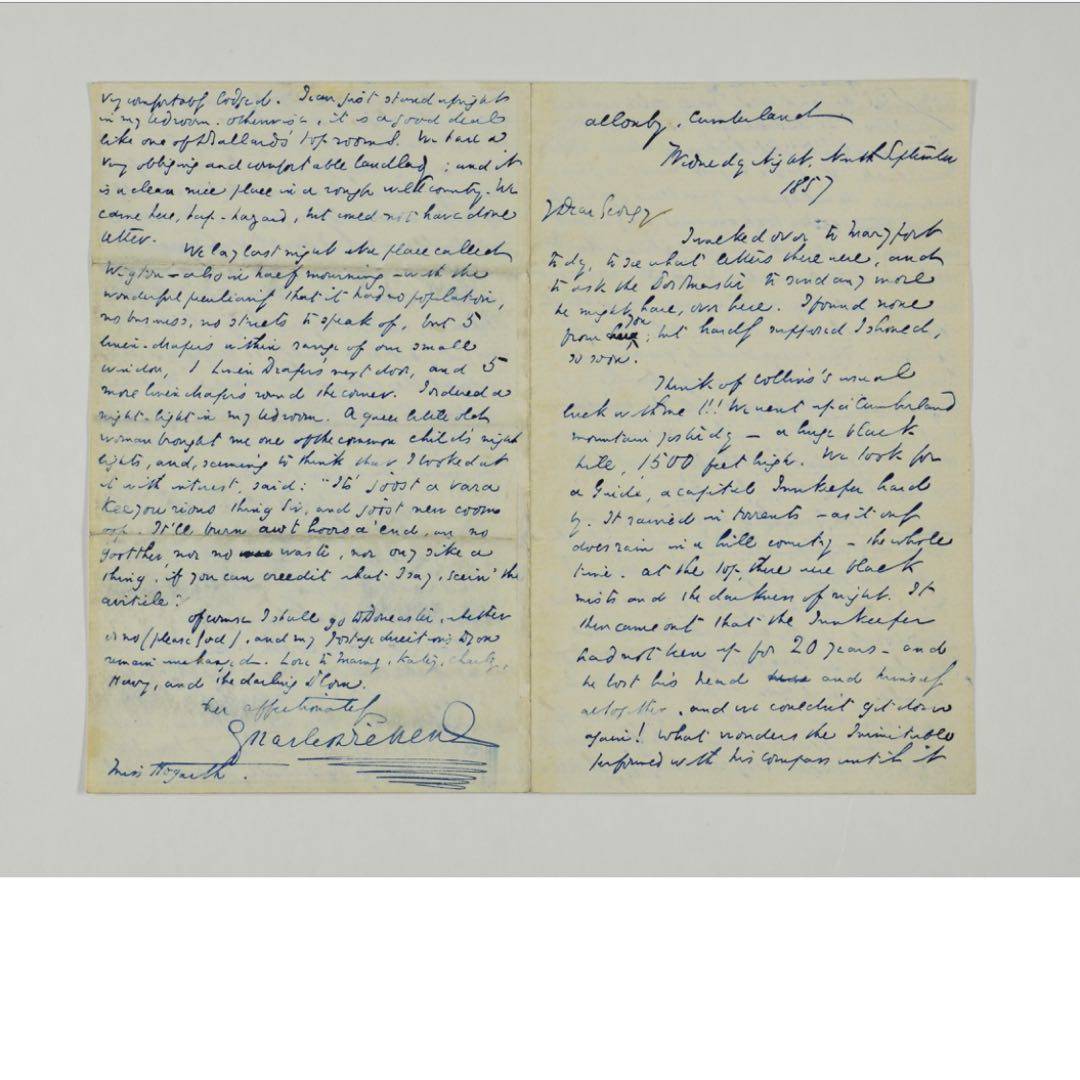 Allonby, Cumberland
Wednesday Night, Ninth September
1857
My Dear Georgy
I walked over to Maryport
today, to see what letters there were, and
to ask the Postmaster to send any more
he might have, over here. I found none
from you; but hardly supposed I should,
so soon.
Think of Collins's usual
luck with me!!! We went up a Cumberland
mountain yesterday – a huge black
hill, 1500 feet high. We look for
a Guide, a capital Innkeeper hard
by. It rained in torrents – as it only
does rain in a hill country – the whole
time. At the top, there were black
mists and the darkness of night. It
then came out that the Innkeeper
had not been up for 20 years – and
he lost his head and himself
altogether, and we couldn't get down
again! What wonders the Inimitable
performed with his compass until it
very comfortably lodged. I can just stand upright
in my bedroom. Otherwise, it is a good deal
like one of Ballard's top rooms. We have a
very obliging and comfortable landlady; and it
is a clean nice place in a rough wild country. We
came here, hap-hazard, but could not have done
better.
We lay last night at a place called
Wigton – also in half mourning – with the
wonderful peculiarity that it had no population,
no business, no streets to speak of, but 5
linen-drapers within range of our small
window, 1 Linen Draper's next door, and 5
more linen drapers round the corner. I ordered a
night-light in my bedroom. A queer little old
woman brought me one of the common child's night
lights, and, seeming to think that I looked at
it with interest, said: "It's joost a vara
keeyourious thing Sir, and joost new coom
oop. It'll burn awt hoors a' end, an no
gootther, nor no waste, nor ony sike a
thing, if you can creedit what I say, seein' the
airticle."
Of course I shall go to Doncaster, whether
or no (please God), and my postage directions to you
remain unchanged. Love to Mamey, Katey, Charley,
Harry, and the darling Plorn.
Ever affectionately
Charles Dickens
Miss Hogarth.